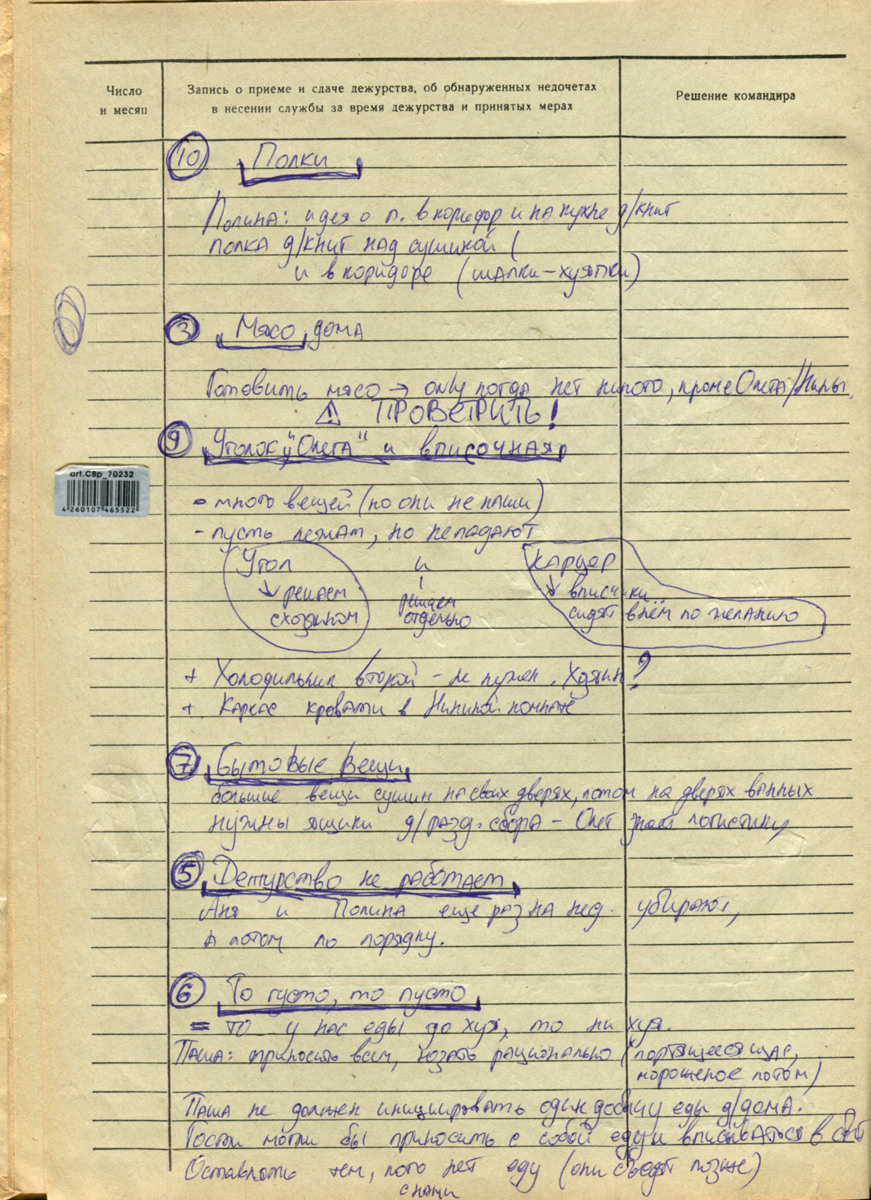 Число и месяц
Запись о приеме и сдаче дежурства, об обнаруженных недочетах в несении службы за время дежурства и принятых мерах
Решение командира
10 Полки
Полина: идея о п. в коридор и на кухне д/книг
полка д/книг над сушилкой (
и в коридоре (шапки-хуяпки)
3 Мясо дома
Готовить мясо → only когда нет никого, кроме Олега/Нины.
⚠ ПРОВЕРИТЬ!
9 Уголок "Олега" и вписочная
- много вещей (но они не наши)
- пусть лежат, но не падают
Угол и карцер
↓ решаем сходином
решаем отдельно
↓ вписчики сидят в нём по желанию
+ Холодильник второй - не нужен. Хозяин?
+ Каркас кровати в Нининой комнате
art.CBp_70232
4 260107 465522
7 Бытовые вещи
большие вещи сушим на своих дверях, потом на дверях ванных
нужны ящики д/разд. сбора - Олег знает логистику
5 Дежурство не работает
Аня и Полина еще раз на нед. убирают,
а потом по порядку.
6 То густо, то пусто
= то у нас еды до хуя, то ни хуя.
Паша: приносить всем, юзать рационально (портящееся щас,
мороженое потом)
Паша не должен инициировать один добычу еды д/дома.
Гости могли бы приносить с собой еду и вписываться в
Оставлять тем, кого нет еду (они съедят позже)
с нами